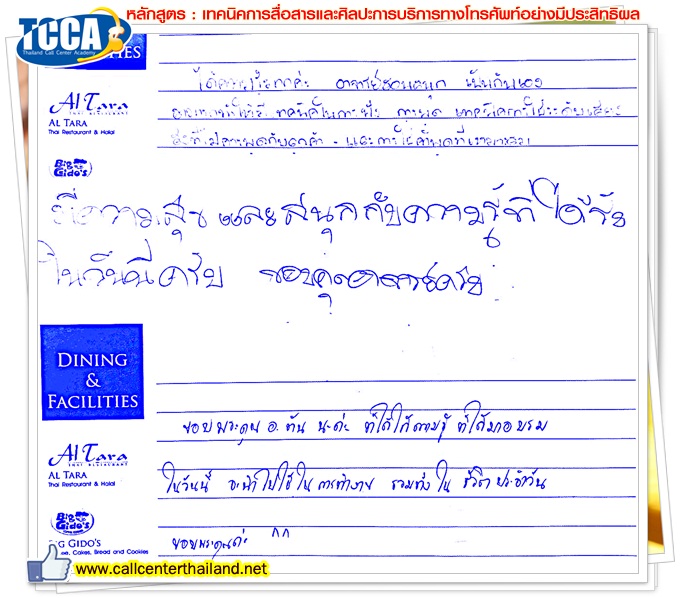 TCCA
Thailand Call Center Academy
หลักสูตร : เทคนิคการสื่อสารและศิลปะการบริการทางโทรศัพท์อย่างมีประสิทธิผล
IES
ได้ความรู้มากค่ะ อาจารย์สอนสนุก เป็นกันเอง
Al Tara
THAI RESTAURANT
AL TARA
Thai Restaurant & Halal
Big Gido's
มีความสุข และสนุกกับความรู้ที่ได้รับ
ในวันนี้ครับ ขอบคุณอาจารย์ครับ
DINING
&
FACILITIES
ขอบพระคุณ อ. นะค่ะ ที่ได้ให้ความรู้ ที่ได้มาอบรม
Al Tara
THAI RESTAURANT
AL TARA
Thai Restaurant & Halal
ในวันนี้ จะนำไปใช้ใน การทำงาน รวมทั้งใน ชีวิตประจำวัน
Big Gido's
BIG GIDO'S
ee, Cakes, Bread and Cookies
ขอบพระคุณค่ะ ^^
www.callcenterthailand.net